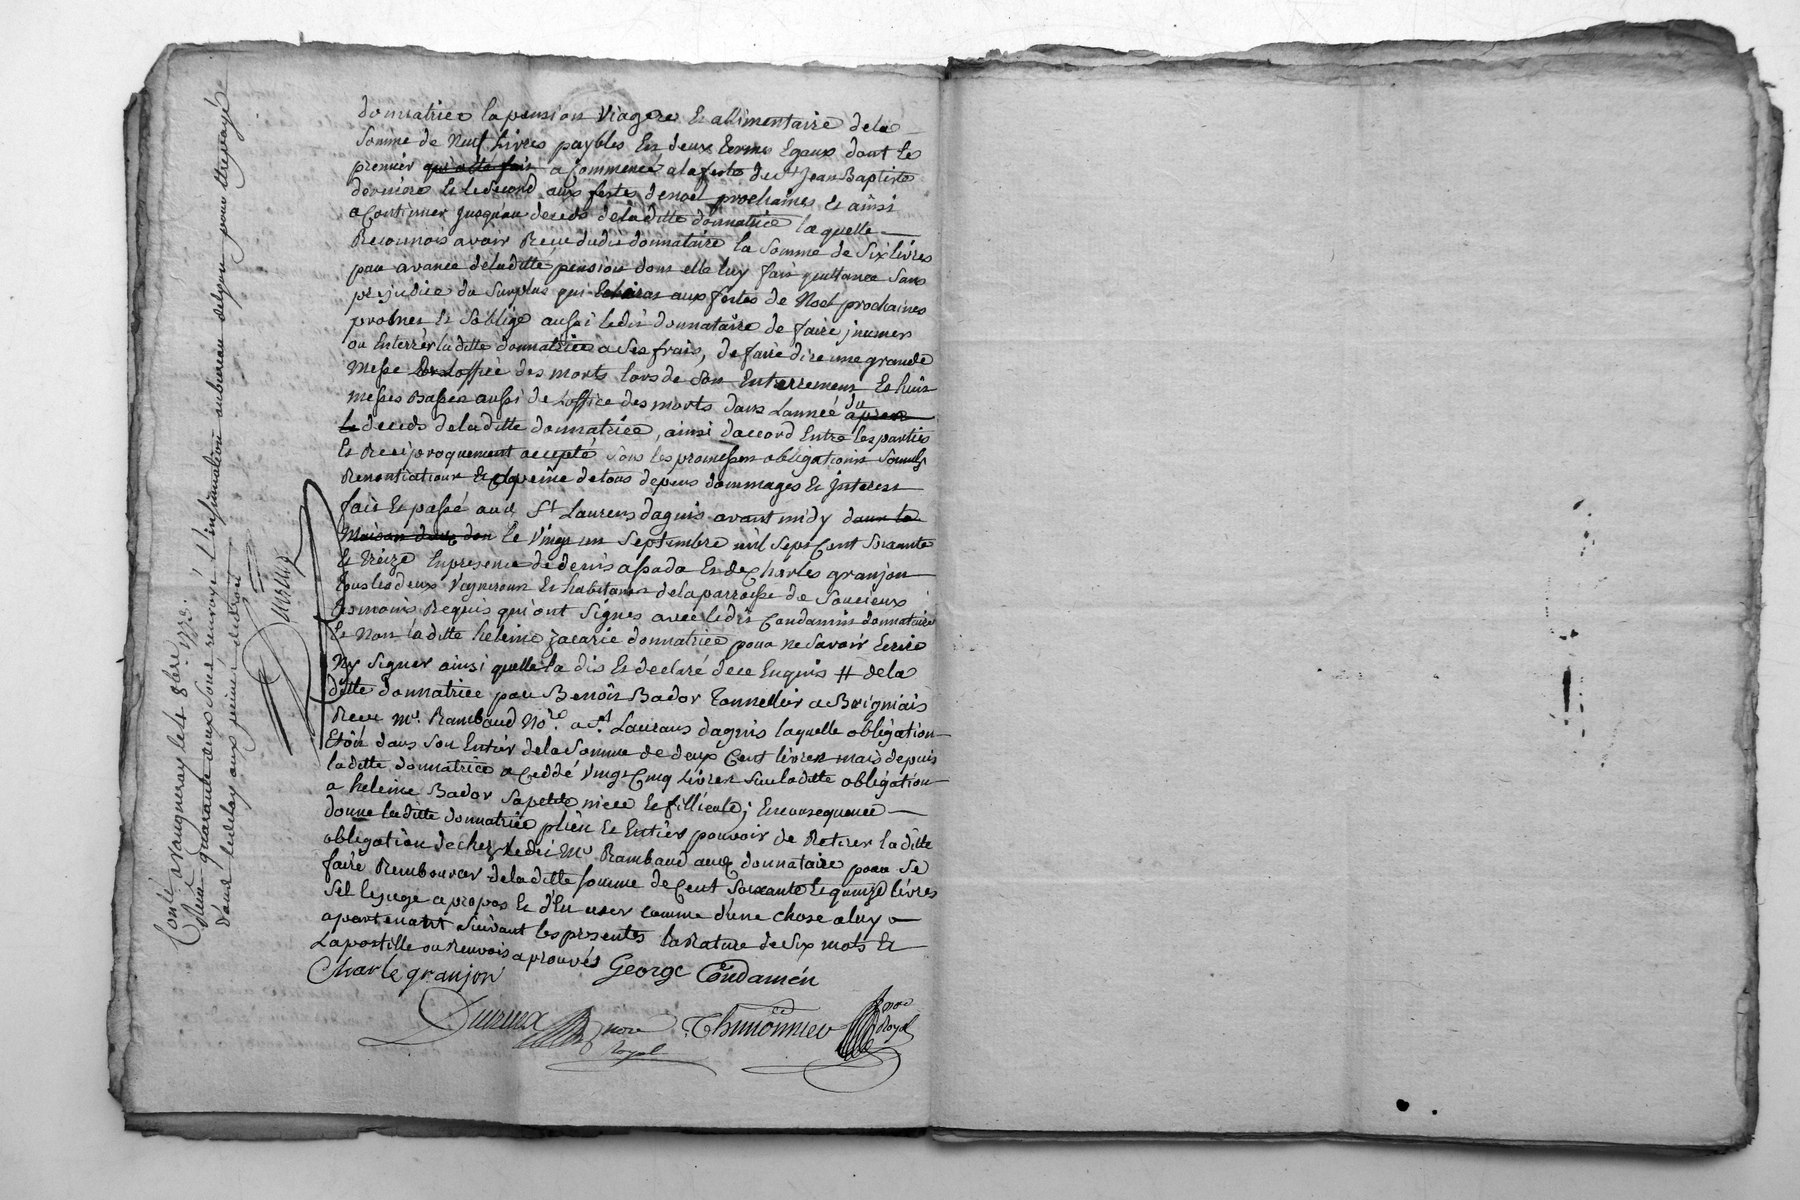 donnatrice la pension Viagere et allimentaire de la
Somme de Neuf Livres paybles En deux termes Egaux dont Le
premier qui a été fait a Commencé a la feste de St Jean Baptiste
derniere Et le Second aux festes de noel prochaines et ainsi
a Continuer Jusquau deceds de la ditte donnatrice laquelle
Reconnois avoir Receu dudit donnataire la Somme de Six livres
par avance de la ditte pension dont elle luy fait quittance Sans
prejudice du Surplus qui Echeras aux festes de Noel prochaines
promet Et S'oblige aussi ledit donnataire de faire jnumer
ou Enterrer la ditte donnatrice a Ses frais, de faire dire une grande
Messe de Loffice des morts lors de Son Enterrement Et huit
messes Basses aussi de Loffice des morts dans Lannée du apres
le deceds de la ditte donnatrice, ainsi d'accord Entre les parties
Et Reciproquement accepté Sous les promesses obligations Soumis
Renontiations Et a peine de tous depens dommages Et Jnterest
fait Et passé aud St Laurens dagnis avant midy dans la
Maison dud don le Vingt un Septembre mil Sept Cent Soixante
Et treize En presence de denis assada Et de Charles granjon
tous les deux Vigneron Et habitants de la parroisse de Soucieux
temoins Requis qui ont Signes avec ledit Condamin donnataire
Et Non la ditte heleine jacarie donnatrice pour ne Savoir Ecrire
Ny Signer ainsi quelle la dis Et declaré de ce Enquis # de la
ditte donnatrice par Benoit Bador Tonnellier a Brignais
Receu Me Rambaud Nore a St Laurans dagnis laquelle obligation
Etoit dans Son Entier de la Somme de deux Cent livres mais depuis
la ditte donnatrice a Ceddé Vingt Cinq Livres Sur la ditte obligation
a heleine Bador Sa petite niece Et fillieule; En consequence
donne la ditte donnatrice plein Et Entier pouvoir de Retirer la ditte
obligation de chez ledit Me Rambaud aud donnataire pour Se
faire Rembourcer de la ditte somme de Cent Soixante Et quinze livres
Sil le juge a propos Et d'En user comme d'une chose a luy
apartenant Suivant les presentes la Rature de Six mots Et
Lapostille ou Renvois aprouvés
Charle granjon George Condamin
Durieux nore Royal Thimonnier nore Royal
Conlé a Vaugneray le 4 8bre 1773.
Reçu quarante deux Sols renvoyé L'insinuation au bureau de lyon pour etre payé
dans les delay aux peines de l'edit
Durieux